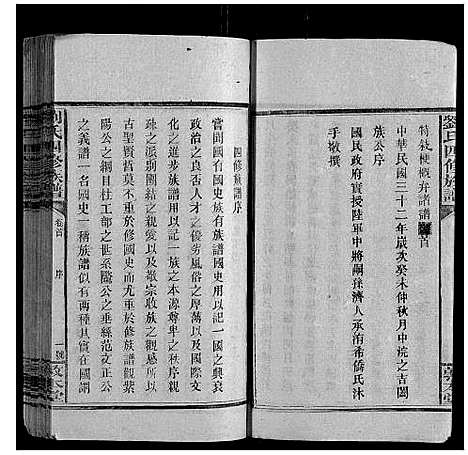 特敘梗概弁諸譜首
中華民國三十二年歲次癸未仲秋月中浣之吉闔
族公序
國民政府實授陸軍中將嗣孫濟人承洧希僑氏沐
手敬撰
劉氏四修族譜
四修族譜序
嘗聞國有國史族有族譜國史用以記一國之興衰
政治之良否人才之優劣風俗之厚薄以及國際文
化之進步族譜用以記一族之本源尊卑之秩序親
疎之派別團結之親愛以及敬宗收族之觀感所以
古聖賢哲莫不重於修國史而尤重於修族譜觀紫
陽公之綱目杜工部之世系龍公之蘇範文正公
之義譜一名國史一稱族譜似有兩種其實在國謂
劉氏四修族譜
卷首
序
一號